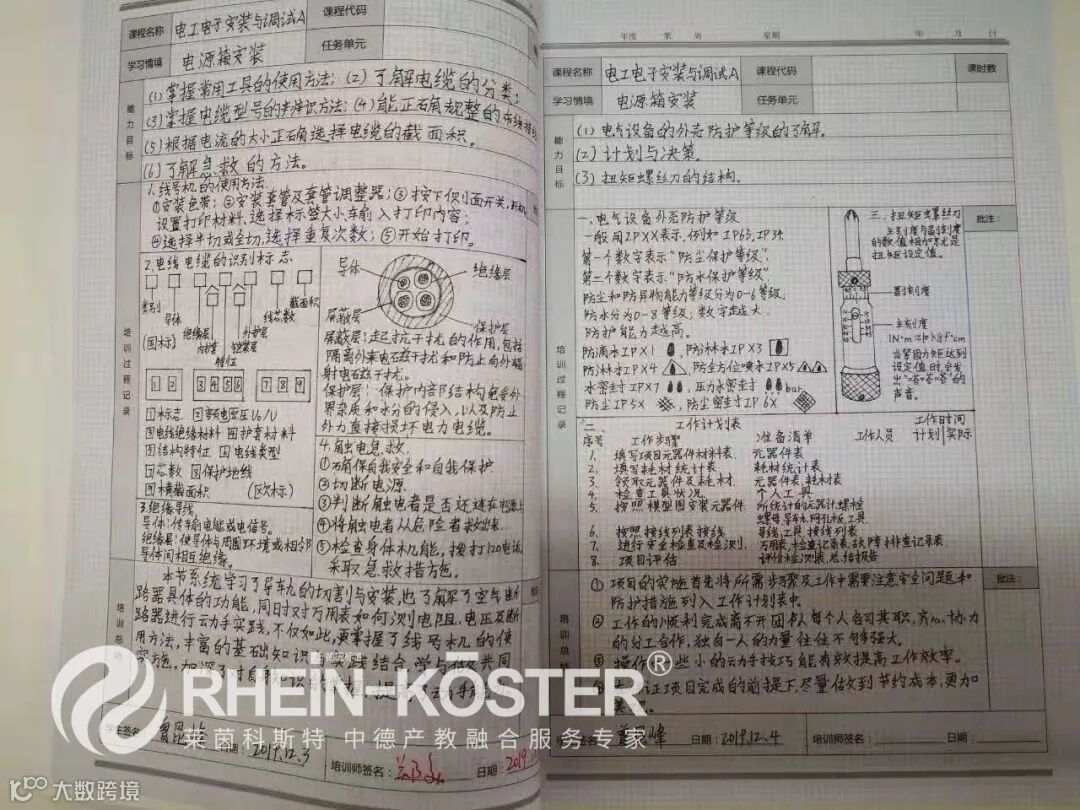 课程名称 电工电子安装与调试A 课程代码
学习情境 电源箱安装 任务单元
能力目标
(1)掌握常用工具的使用方法;(2)了解电缆的分类;
(3)掌握电缆型号的辨识方法;(4)能正确规整的布线接线
(5)根据电流的大小正确选择电缆的截面积。
(6)了解急救的方法。
培训过程记录
1.线号机的使用方法
①安装色带;②安装套管及套管调整器;③按下侧面开关,开机
设置打印材料,选择标签大小,输入打印内容;
④选择半切或全切,选择重复次数;⑤开始打印。
2.电线电缆的识别标志
类别
导体
绝缘层
内护套
特征
铠装层
外护层
线芯数
截面积
(国标)
1 2 3 4 5 6 7 8 9
1标志 2额定电压U0/U
3电线绝缘材料 4护套材料
5结构特征 6电线类型
7芯数 8保护地线
9横截面积 (区次标)
3.绝缘导线
导体:传输电能或电信号。
绝缘层:使导体与周围环境或相邻
导体间相互绝缘。
导体 绝缘层
屏蔽层 保护层
屏蔽层:起抗干扰的作用,包括
隔离外来电磁干扰和防止向外辐
射电磁干扰。
保护层:保护内部结构免受外
界杂质和水分的侵入,以及防止
外力直接损坏电力电缆。
4.触电急救
①确保自我安全和自我保护
②切断电源
③判断触电者是否还连在电源上
④将触电者从危险者救出来
⑤检查身体机能,拨打120电话,
采取急救措施。
培训总结
本节系统学习了导轨的切割与安装,也了解了空气断
路器具体的功能,同时对万用表如何测电阻、电压及断
路器进行动手实践,不仅如此,更掌握了线号机的使
用方法,丰富的基础知识与实践结合,学与做共同
学生签名: 日期:2019.12.3
培训师签名: 日期:
年度 第 周 星期 年 月 日
课程名称 电工电子安装与调试A 课程代码 课时数
学习情境 电源箱安装 任务单元
能力目标
(1)电气设备的外壳防护等级的了解。
(2)计划与决策。
(3)扭矩螺丝刀的结构。
培训过程记录
批注:
一、电气设备外壳防护等级
一般用IPXX表示,例如IP65,IP34
第一个数字表示“防尘保护等级”,
第二个数字表示“防水保护等级”
防尘和防异物能力等级分为0-6等级,
防水分为0-8等级,数字越大,
防护能力越高。
防滴水IPX1 防淋水IPX3
防溅水IPX4 防全方位喷水IPX5
水密封IPX7 压力水密封 bar
防尘IP5X 防尘密封IP6X
三、扭矩螺丝刀
主刻度与副刻度
的数值相加就是
扭矩设定值。
副刻度
主刻度
当紧固力矩达到
设定值时会发
出“嗒嗒嗒”的
声音。
二、 工作计划表
序号 工作步骤 准备清单 工作人员 工作时间
计划 实际
1. 填写项目元器件材料表. 元器件表
2. 填写耗材统计表 耗材统计表
3. 领取元器件及耗材. 元器件表,耗材表
4. 检查工具状况 个人工具
5. 按照模型图安装元器件. 所统计的元器件,螺栓
螺母,导轨,网孔板,工具
6. 按照接线列表接线 导线,工具,接线列表
7. 进行安全检查及检测. 万用表,检查记录表,故障排查记录表
8. 项目评估 评价检测表,总结报告
培训总结
批注:
① 项目的实施首先将所需步骤及工作中需要注意安全问题和
防护措施列入工作计划表中。
② 工作的顺利完成离不开团队每个人各司其职,齐心协力
的分工合作,独自一人的力量往往不够强大。
③ 操作 些小的动手技巧能有效提高工作效率。
证项目完成的前提下,尽量做到节约成本,更加
美
日期:2019.12.4 培训师签名: 日期:
RHEIN-KÖSTER®
莱茵科斯特 中德产教融合服务专家
大数跨境